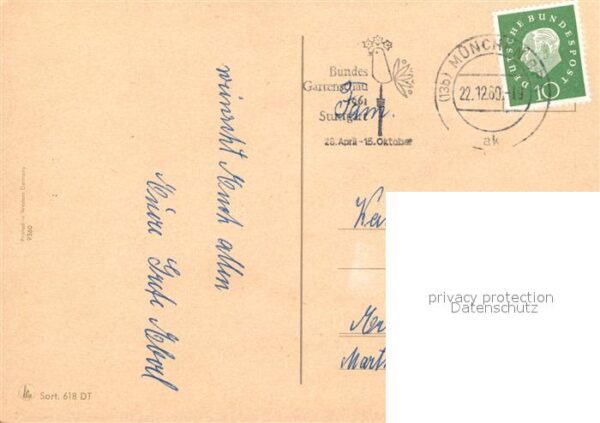 wünscht Euch allen
Eure Grete Aberl
Printed in Western Germany
9360
Sort. 618 DT
Bundes
Gartenschau
1961
Stuttgart
28. April - 15. Oktober
(13b) MÜNCHEN
22.12.60.
ak
DEUTSCHE BUNDESPOST
10
Fam.
privacy protection
Datenschutz